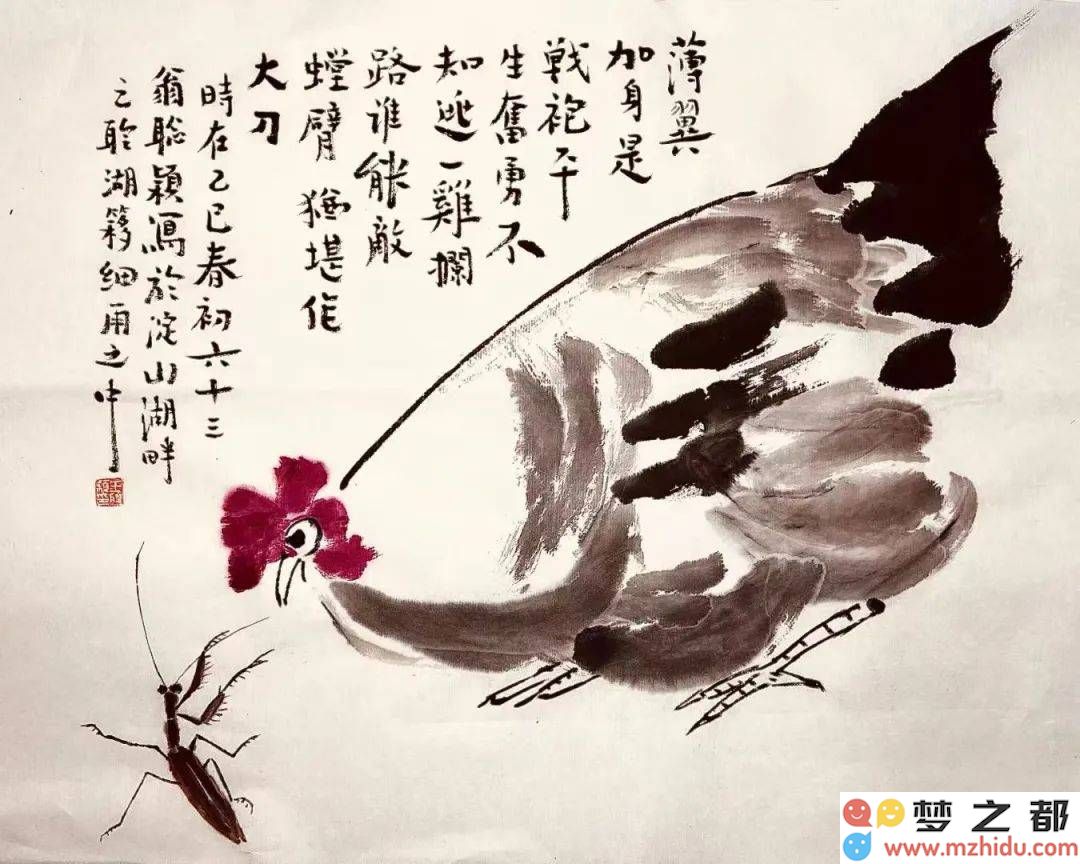 薄翼
加身是
戦袍平
生奮勇不
知逃一雞攔
路谁能敵
螳臂猶堪作
大刀
時在乙巳春初六十三
翁聡穎寫於淀山湖畔
之聆湖簃细雨之中
梦之都
www.mzhidu.com